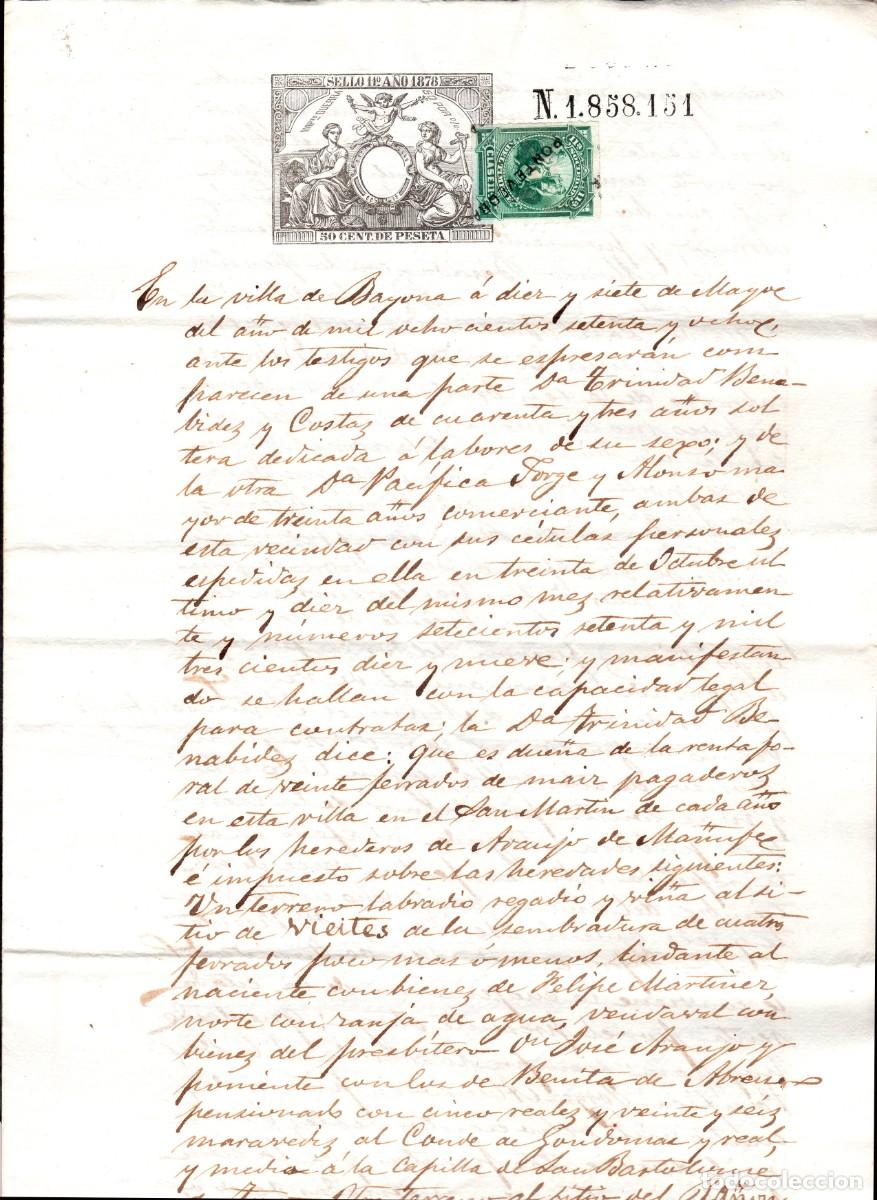 SELLO 11º AÑO 1878
50 CENT. DE PESETA
N. 1.858.151
PONTEVEDRA
En la villa de Bayona á diez y siete de Mayo
del año de mil ocho cientos setenta y ocho,
ante los testigos que se espresarán com
parecen de una parte Da Trinidad Bena-
bidez y Costaz de cuarenta y tres años sol
tera dedicada á labores de su sexo; y de
la otra Da Pacífica Jorge y Alonso ma
yor de treinta años comerciante, ambas de
esta vecindad con sus cédulas personalez
espedidaz en ella en treinta de Octubre ul
timo y diez del mismo mez relativamen-
te y números setecientos setenta y mil
tres cientos diez y nueve; y manifestan
do se hallan con la capacidad legal
para contratar; la Da Trinidad Be-
nabidez dice: que es dueña de la renta fo-
ral de veinte ferrados de maiz pagaderoz
en esta villa en el San Martin de cada año
por los herederos de Araujo de Mañufe
é impuesto sobre las heredades siguientes:
Un terreno labradio regadio y viña al si-
tio de Vieites de la sembradura de cuatro
ferrados poco mas ó menos, lindante al
naciente con bienez de Felipe Martinez,
norte con zanja de agua, vendaval con
bienez del presbítero Dn José Araujo y
poniente con los de Benita de Abreu
pensionado con cinco realez y veinte y seiz
maravediz al Conde de Gondomar y real
y medio á la Capilla de San Bartolome
Otro terreno al sitio del
todocoleccion